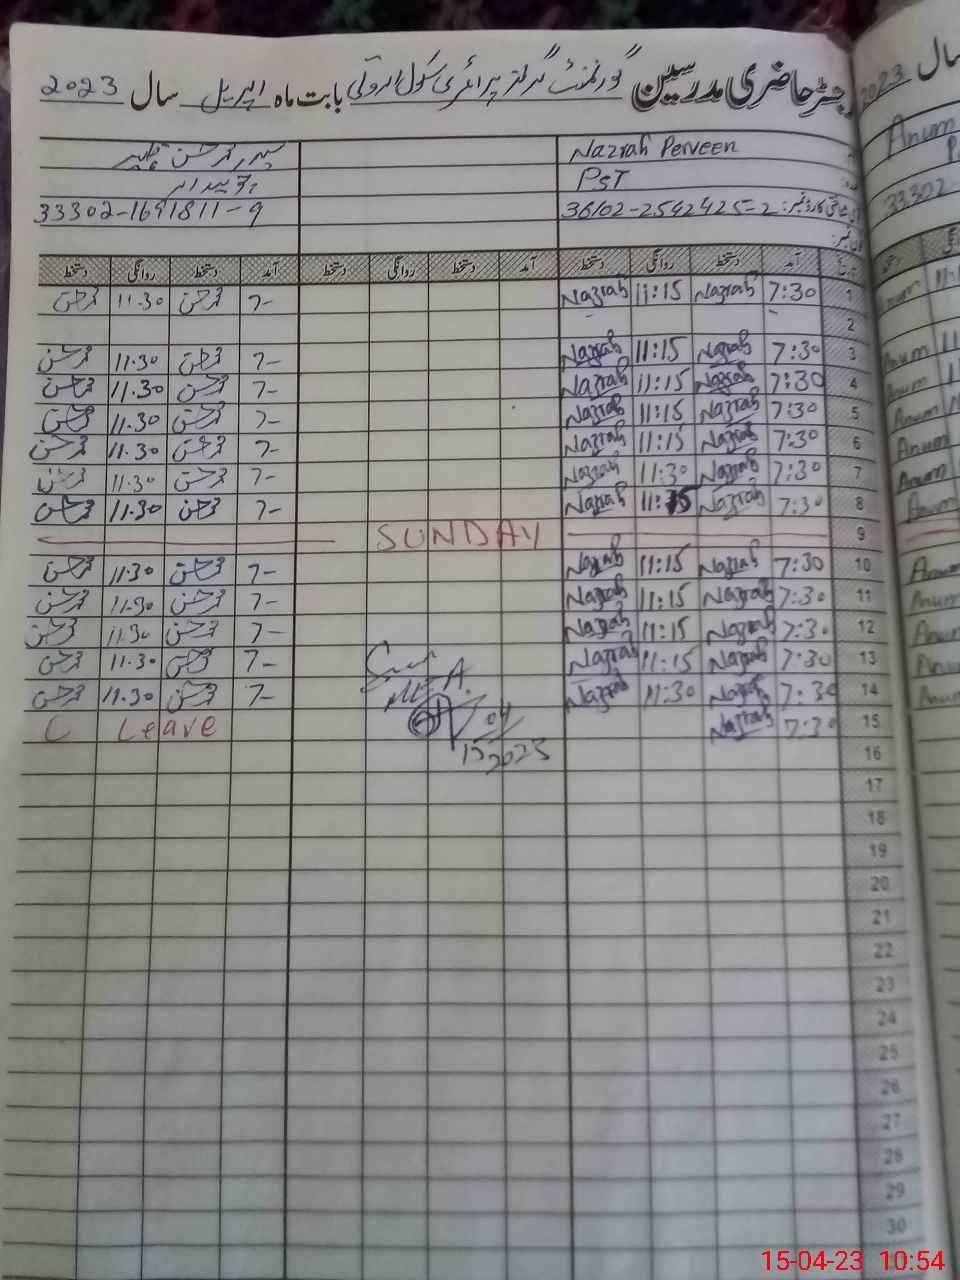 رجسٹر حاضری مدرسین گورنمنٹ گرلز پرائمری سکول بابت ماہ اپریل سال 2023
Nazrah Perveen
PST
36102-2542425-2 33302-1691811-9
آمد دستخط روانگی دستخط آمد دستخط روانگی دستخط آمد دستخط روانگی دستخط
1 7:30 Nazrah 11:15 Nazrah 7- 11.30
2
3 7:30 Nazrah 11:15 Nazrah 7- 11.30
4 7:30 Nazrah 11:15 Nazrah 7- 11.30
5 7:30 Nazrah 11:15 Nazrah 7- 11.30
6 7:30 Nazrah 11:15 Nazrah 7- 11.30
7 7:30 Nazrah 11:30 Nazrah 7- 11.30
8 7:30 Nazrah 11:15 Nazrah 7- 11.30
9 SUNDAY
10 7:30 Nazrah 11:15 Nazrah 7- 11.30
11 7:30 Nazrah 11:15 Nazrah 7- 11.30
12 7:30 Nazrah 11:15 Nazrah 7- 11.30
13 7:30 Nazrah 11:15 Nazrah 7- 11.30
14 7:30 Nazrah 11:30 Nazrah 7- 11.30
15 7:30 Nazrah C Leave
15 04 2023
16
17
18
19
20
21
22
23
24
25
26
27
28
29
30
سال 2023
Anum
33302-
Anum 11
Anum 11
Anum
Anum
Anum
Anum
Anum
Anum
Anum
Anum
Anum
Anum
15-04-23 10:54